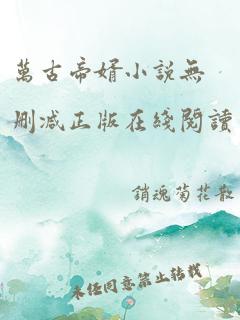 萬古帝婿小說無
刪減正版在綫閱讀
銷魂菊花散
未經同意禁止轉載